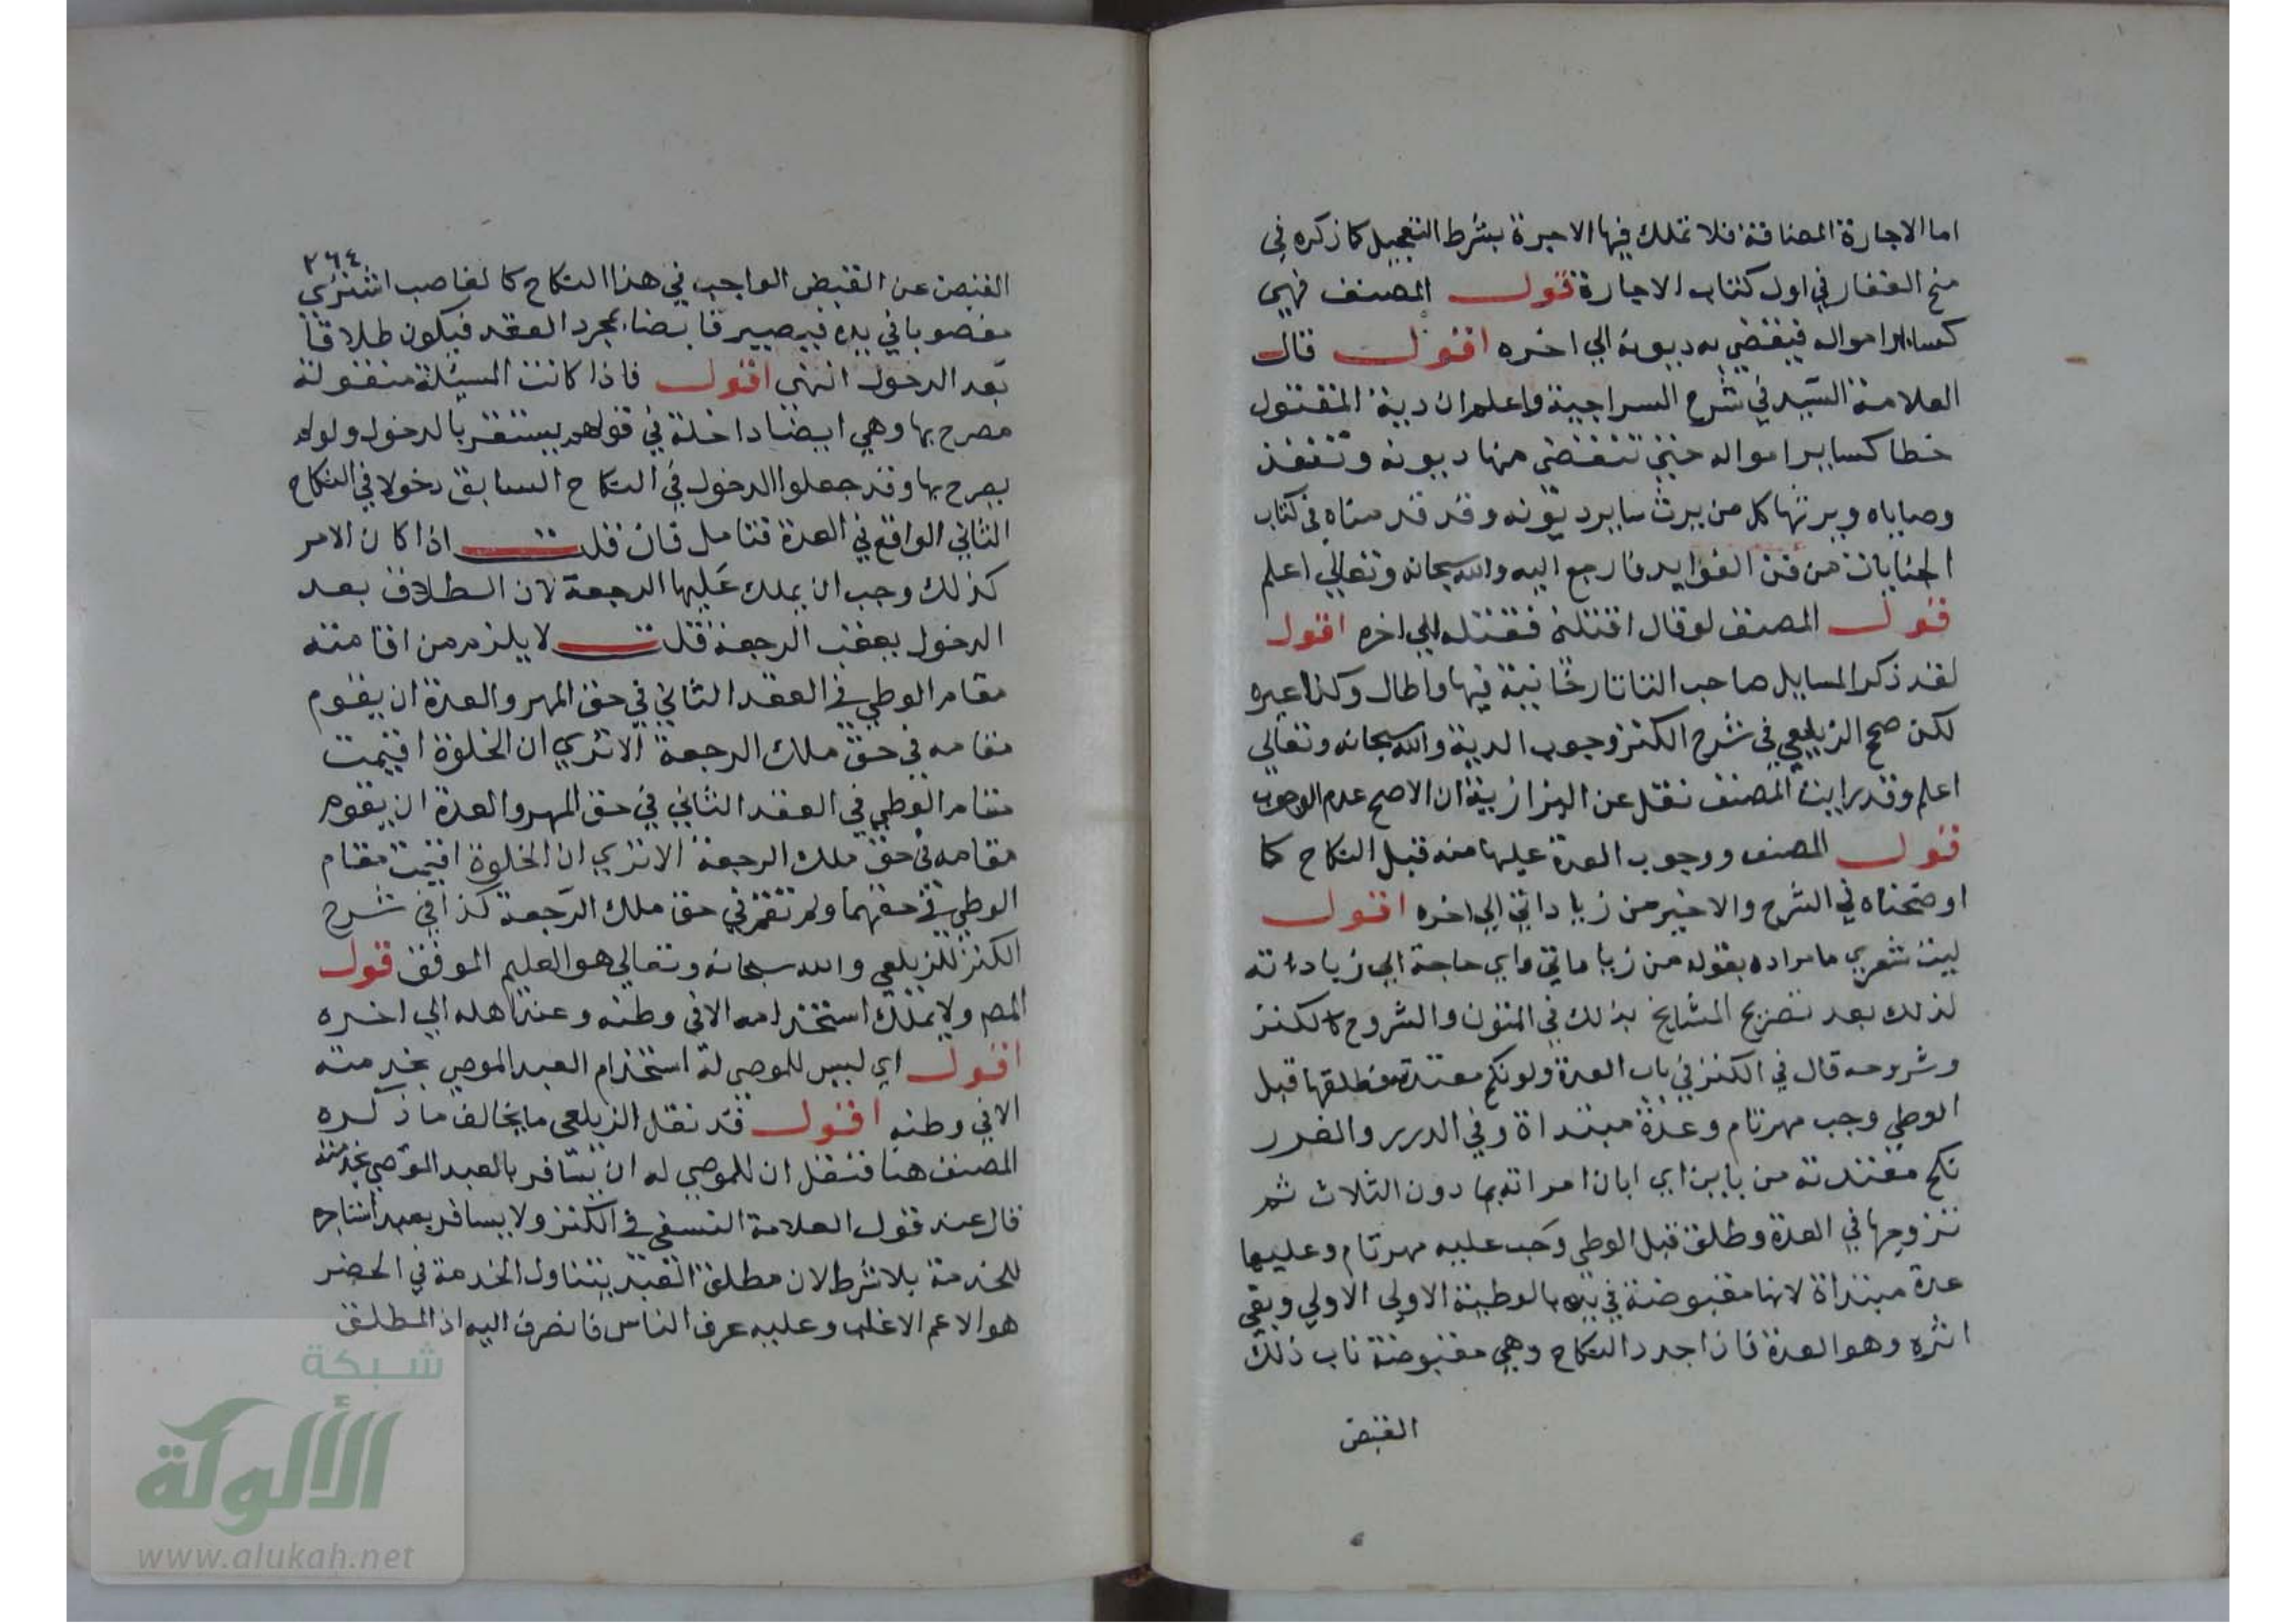 اما الاجارة المضافة فلا تملك فيها الاجرة بشرط التعجيل كما ذكره في
منح الغفار في اول كتاب الاجارة قول المصنف فهي
كساير امواله فيقضي به ديونه الي اخره اقول قال
العلامة السيد في شرح السراجية واعلم ان دية المقتول
خطا كساير امواله حتي تنقضي منها ديونه وتنفذ
وصاياه ويرثها كل من يرث ساير ديونه وقد قدمناه في كتاب
الجنايات من فن الفوايد فارجع اليه والله سبحانه وتعالي اعلم
قول المصنف لو قال اقتلني فقتله الي اخره اقول
لقد ذكر المسايل صاحب التاتارخانية فيها واطال وكذا غيره
لكن صحح الزيلعي في شرح الكنز وجوب الدية والله سبحانه وتعالي
اعلم وقد رايت المصنف نقل عن البزازية ان الاصح عدم الوجوب
قول المصنف ووجوب العدة عليها منه قبل النكاح كما
اوضحناه في الشرح والاخير من زياداتي الي اخره اقول
ليت شعري ما مراده بقوله من زياداتي واي حاجة الي زياداته
لذلك بعد تصريح المشايخ بذلك في المتون والشروح كالكنز
وشروحه قال في الكنز في باب العدة ولو نكح معتدته فطلقها قبل
الوطي وجب مهر تام وعدة مبتداة وفي الدرر والغرر
نكح معتدته من باين اي ابان امراته بما دون الثلاث ثم
تزوجها في العدة وطلق قبل الوطي وجب عليه مهر تام وعليها
عدة مبتداة لانها مقبوضة في يده بالوطية الاولي الاولي وبقي
اثره وهو العدة فاذا جدد النكاح وهي مقبوضة ناب ذلك
القبض
٢٦٤
القبض عن القبض الواجب في هذا النكاح كالغاصب اشتري
مغصوبا في يده فيصير قابضا بمجرد العقد فيكون طلاقا
بعد الدخول انتهي اقول فاذا كانت المسئلة منقولة
مصرح بها وهي ايضا داخلة في قولهم يستقر بالدخول ولو لم
يصرح بها وقد جعلوا الدخول في النكاح السابق دخولا في النكاح
الثاني الواقع في العدة فتامل فان قلت اذا كان الامر
كذلك وجب ان يملك عليها الرجعة لان الطلاق بعد
الدخول يعقب الرجعة قلت لا يلزم من اقامته
مقام الوطي في العقد الثاني في حق المهر والعدة ان يقوم
مقامه في حق ملك الرجعة الا تري ان الخلوة اقيمت
مقام الوطي في العقد الثاني في حق المهر والعدة ان يقوم
مقامه في حق ملك الرجعة الا تري ان الخلوة اقيمت مقام
الوطي في حقهما ولم تقم في حق ملك الرجعة كذا في شرح
الكنز للزيلعي والله سبحانه وتعالي هو العليم الموفق قول
المص ولا يملك استخدامه الا في وطنه وعند اهله الي اخره
اقول اي ليس للموصي له استخدام العبد الموصي بخدمته
الا في وطنه اقول قد نقل الزيلعي ما يخالف ما ذكره
المصنف هنا فنقل ان للموصي له ان يسافر بالعبد الموصي بخدمته
قال عند قول العلامة النسفي في الكنز ولا يسافر بعبد استاجره
للخدمة بلا شرط لان مطلق العقد يتناول الخدمة في الحضر
هو الاعم الاغلب وعليه عرف الناس فانصرف اليه اذ المطلق
شبكة
الألوكة
www.alukah.net